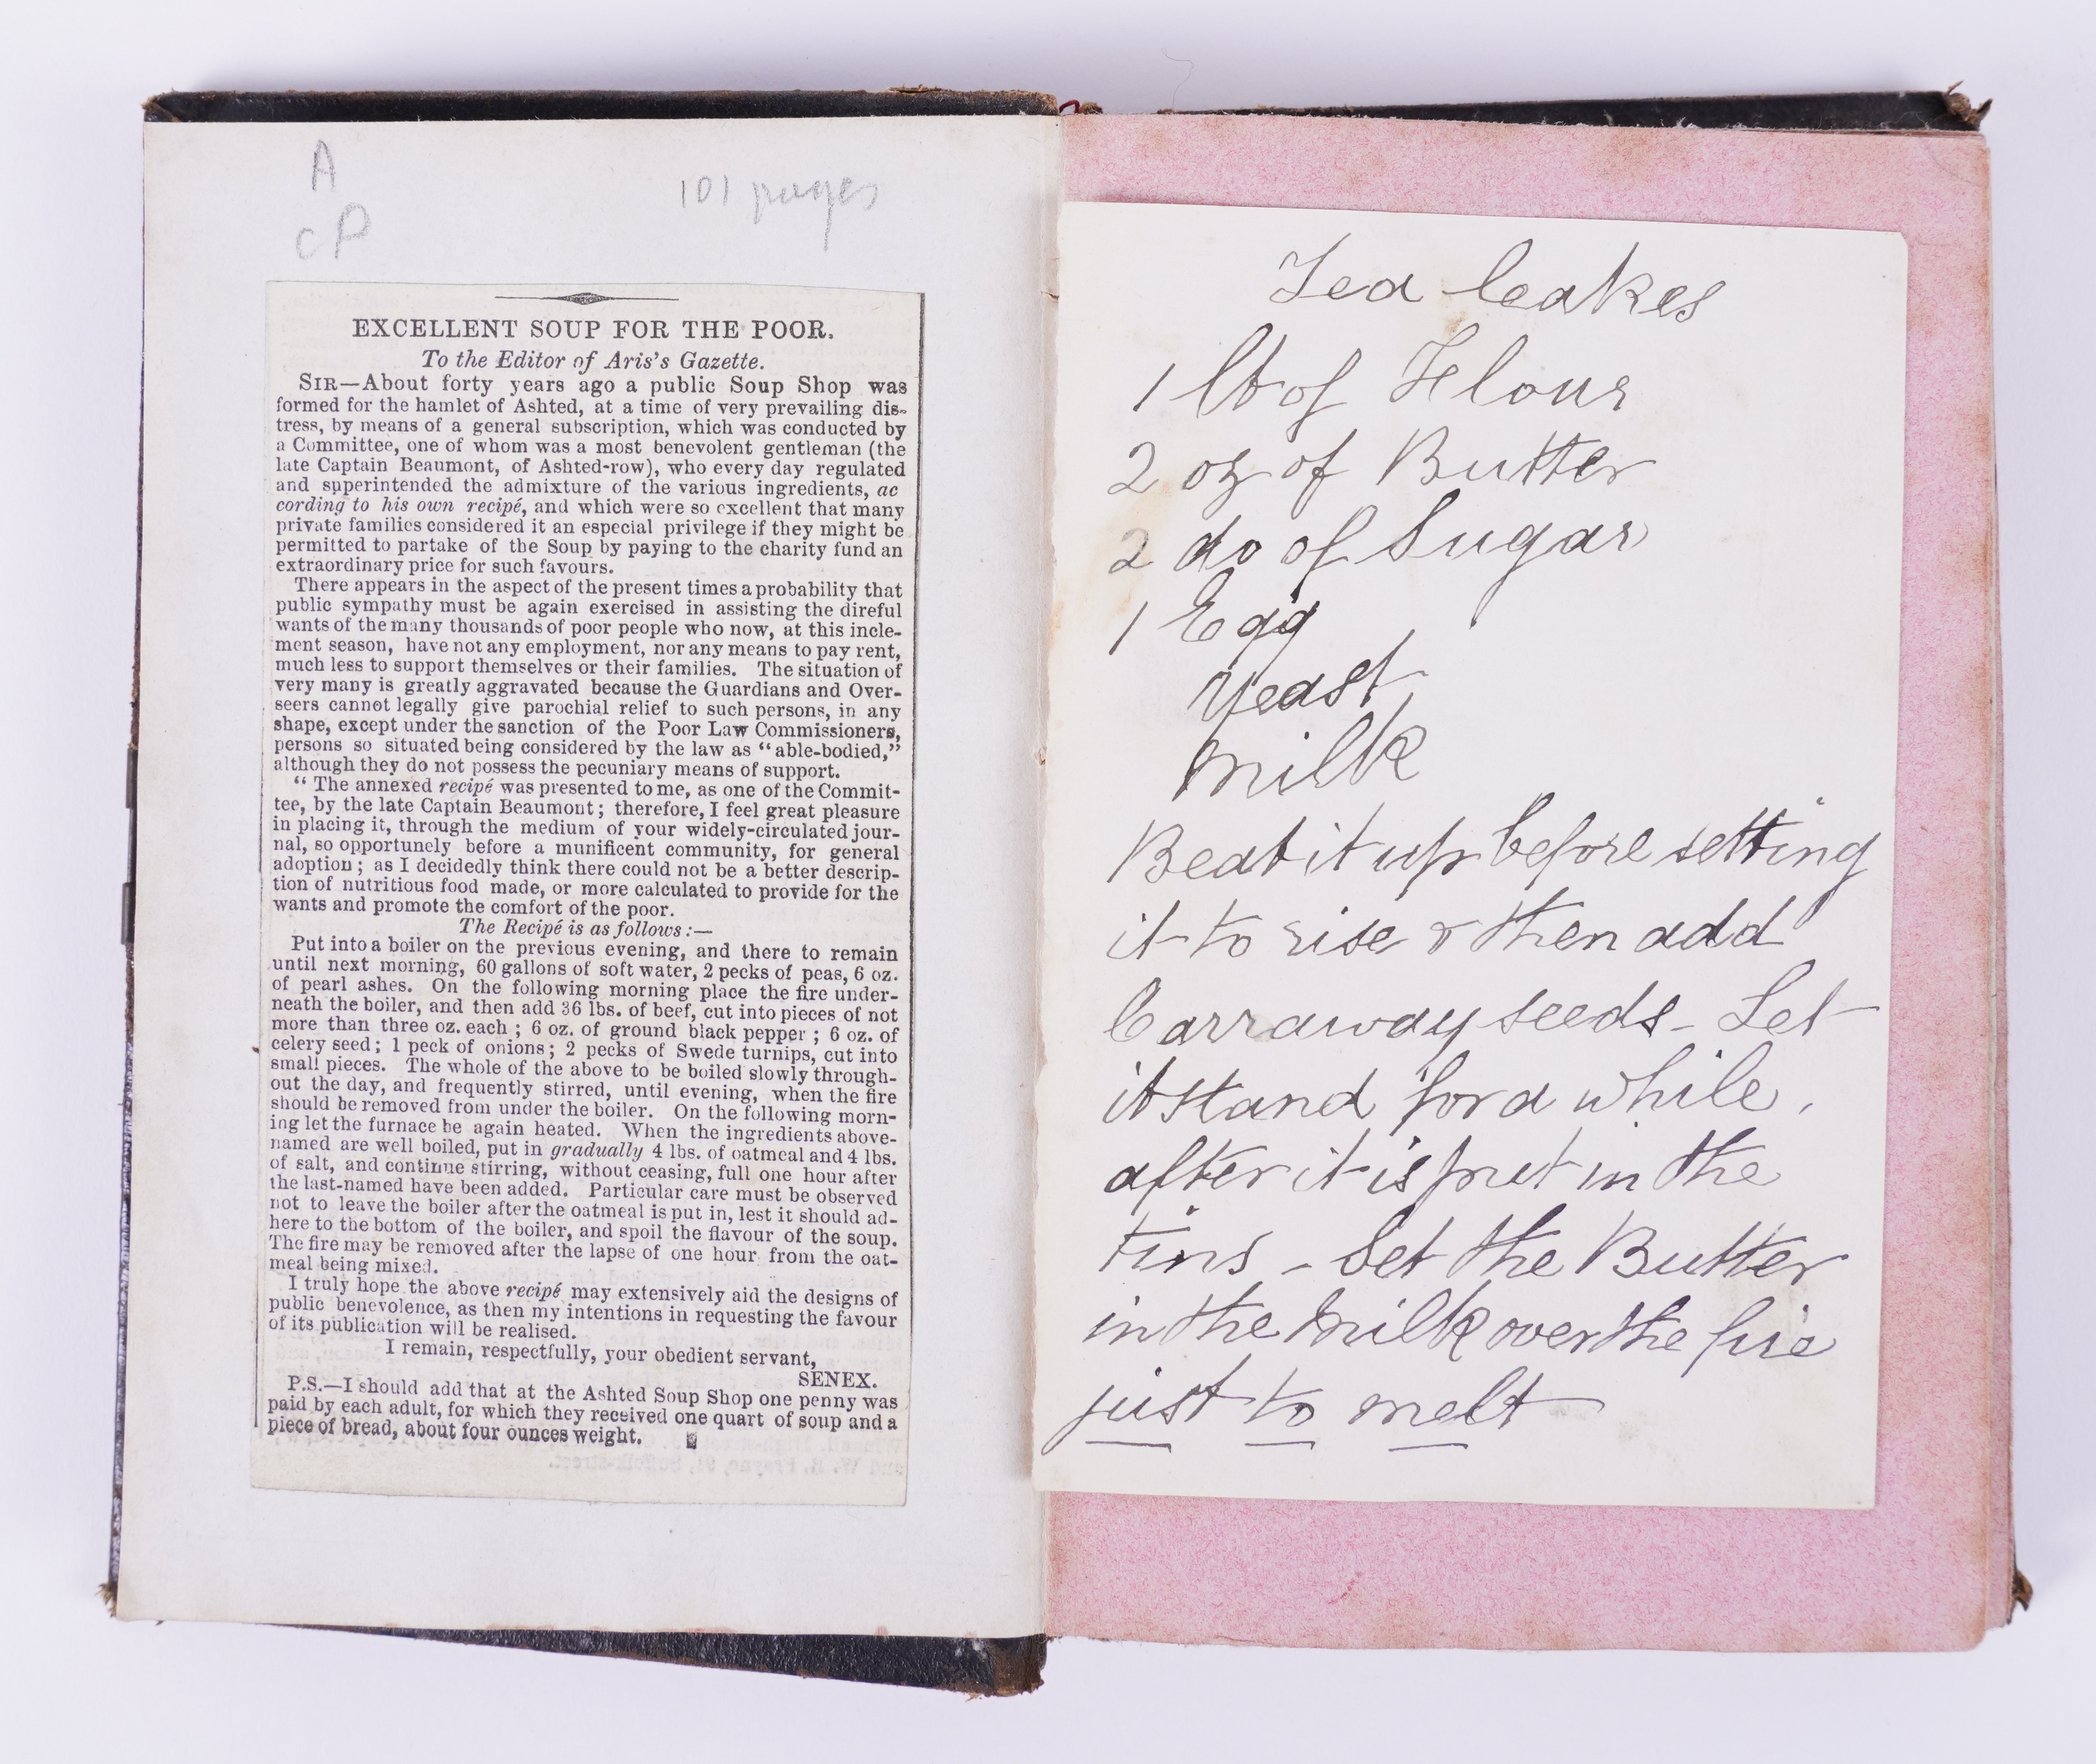 A
CP
101 pages
EXCELLENT SOUP FOR THE POOR.
To the Editor of Aris's Gazette.
SIR—About forty years ago a public Soup Shop was
formed for the hamlet of Ashted, at a time of very prevailing dis-
tress, by means of a general subscription, which was conducted by
a Committee, one of whom was a most benevolent gentleman (the
late Captain Beaumont, of Ashted-row), who every day regulated
and superintended the admixture of the various ingredients, ac
cording to his own recipé, and which were so excellent that many
private families considered it an especial privilege if they might be
permitted to partake of the Soup by paying to the charity fund an
extraordinary price for such favours.
There appears in the aspect of the present times a probability that
public sympathy must be again exercised in assisting the direful
wants of the many thousands of poor people who now, at this incle-
ment season, have not any employment, nor any means to pay rent,
much less to support themselves or their families. The situation of
very many is greatly aggravated because the Guardians and Over-
seers cannot legally give parochial relief to such persons, in any
shape, except under the sanction of the Poor Law Commissioners,
persons so situated being considered by the law as "able-bodied,"
although they do not possess the pecuniary means of support.
"The annexed recipé was presented to me, as one of the Commit-
tee, by the late Captain Beaumont; therefore, I feel great pleasure
in placing it, through the medium of your widely-circulated jour-
nal, so opportunely before a munificent community, for general
adoption; as I decidedly think there could not be a better descrip-
tion of nutritious food made, or more calculated to provide for the
wants and promote the comfort of the poor.
The Recipé is as follows:—
Put into a boiler on the previous evening, and there to remain
until next morning, 60 gallons of soft water, 2 pecks of peas, 6 oz.
of pearl ashes. On the following morning place the fire under-
neath the boiler, and then add 36 lbs. of beef, cut into pieces of not
more than three oz. each; 6 oz. of ground black pepper; 6 oz. of
celery seed; 1 peck of onions; 2 pecks of Swede turnips, cut into
small pieces. The whole of the above to be boiled slowly through-
out the day, and frequently stirred, until evening, when the fire
should be removed from under the boiler. On the following morn-
ing let the furnace be again heated. When the ingredients above-
named are well boiled, put in gradually 4 lbs. of oatmeal and 4 lbs.
of salt, and continue stirring, without ceasing, full one hour after
the last-named have been added. Particular care must be observed
not to leave the boiler after the oatmeal is put in, lest it should ad-
here to the bottom of the boiler, and spoil the flavour of the soup.
The fire may be removed after the lapse of one hour from the oat-
meal being mixed.
I truly hope the above recipé may extensively aid the designs of
public benevolence, as then my intentions in requesting the favour
of its publication will be realised.
I remain, respectfully, your obedient servant,
SENEX.
P.S.—I should add that at the Ashted Soup Shop one penny was
paid by each adult, for which they received one quart of soup and a
piece of bread, about four ounces weight.
Tea Cakes
1 lb of Flour
2 oz of Butter
2 do of Sugar
1 Egg
Yeast
Milk
Beat it up before setting
it to rise & then add
Carraway seeds - Let
it stand for a while,
after it is put in the
tins - Set the Butter
in the Milk over the fire
just to melt